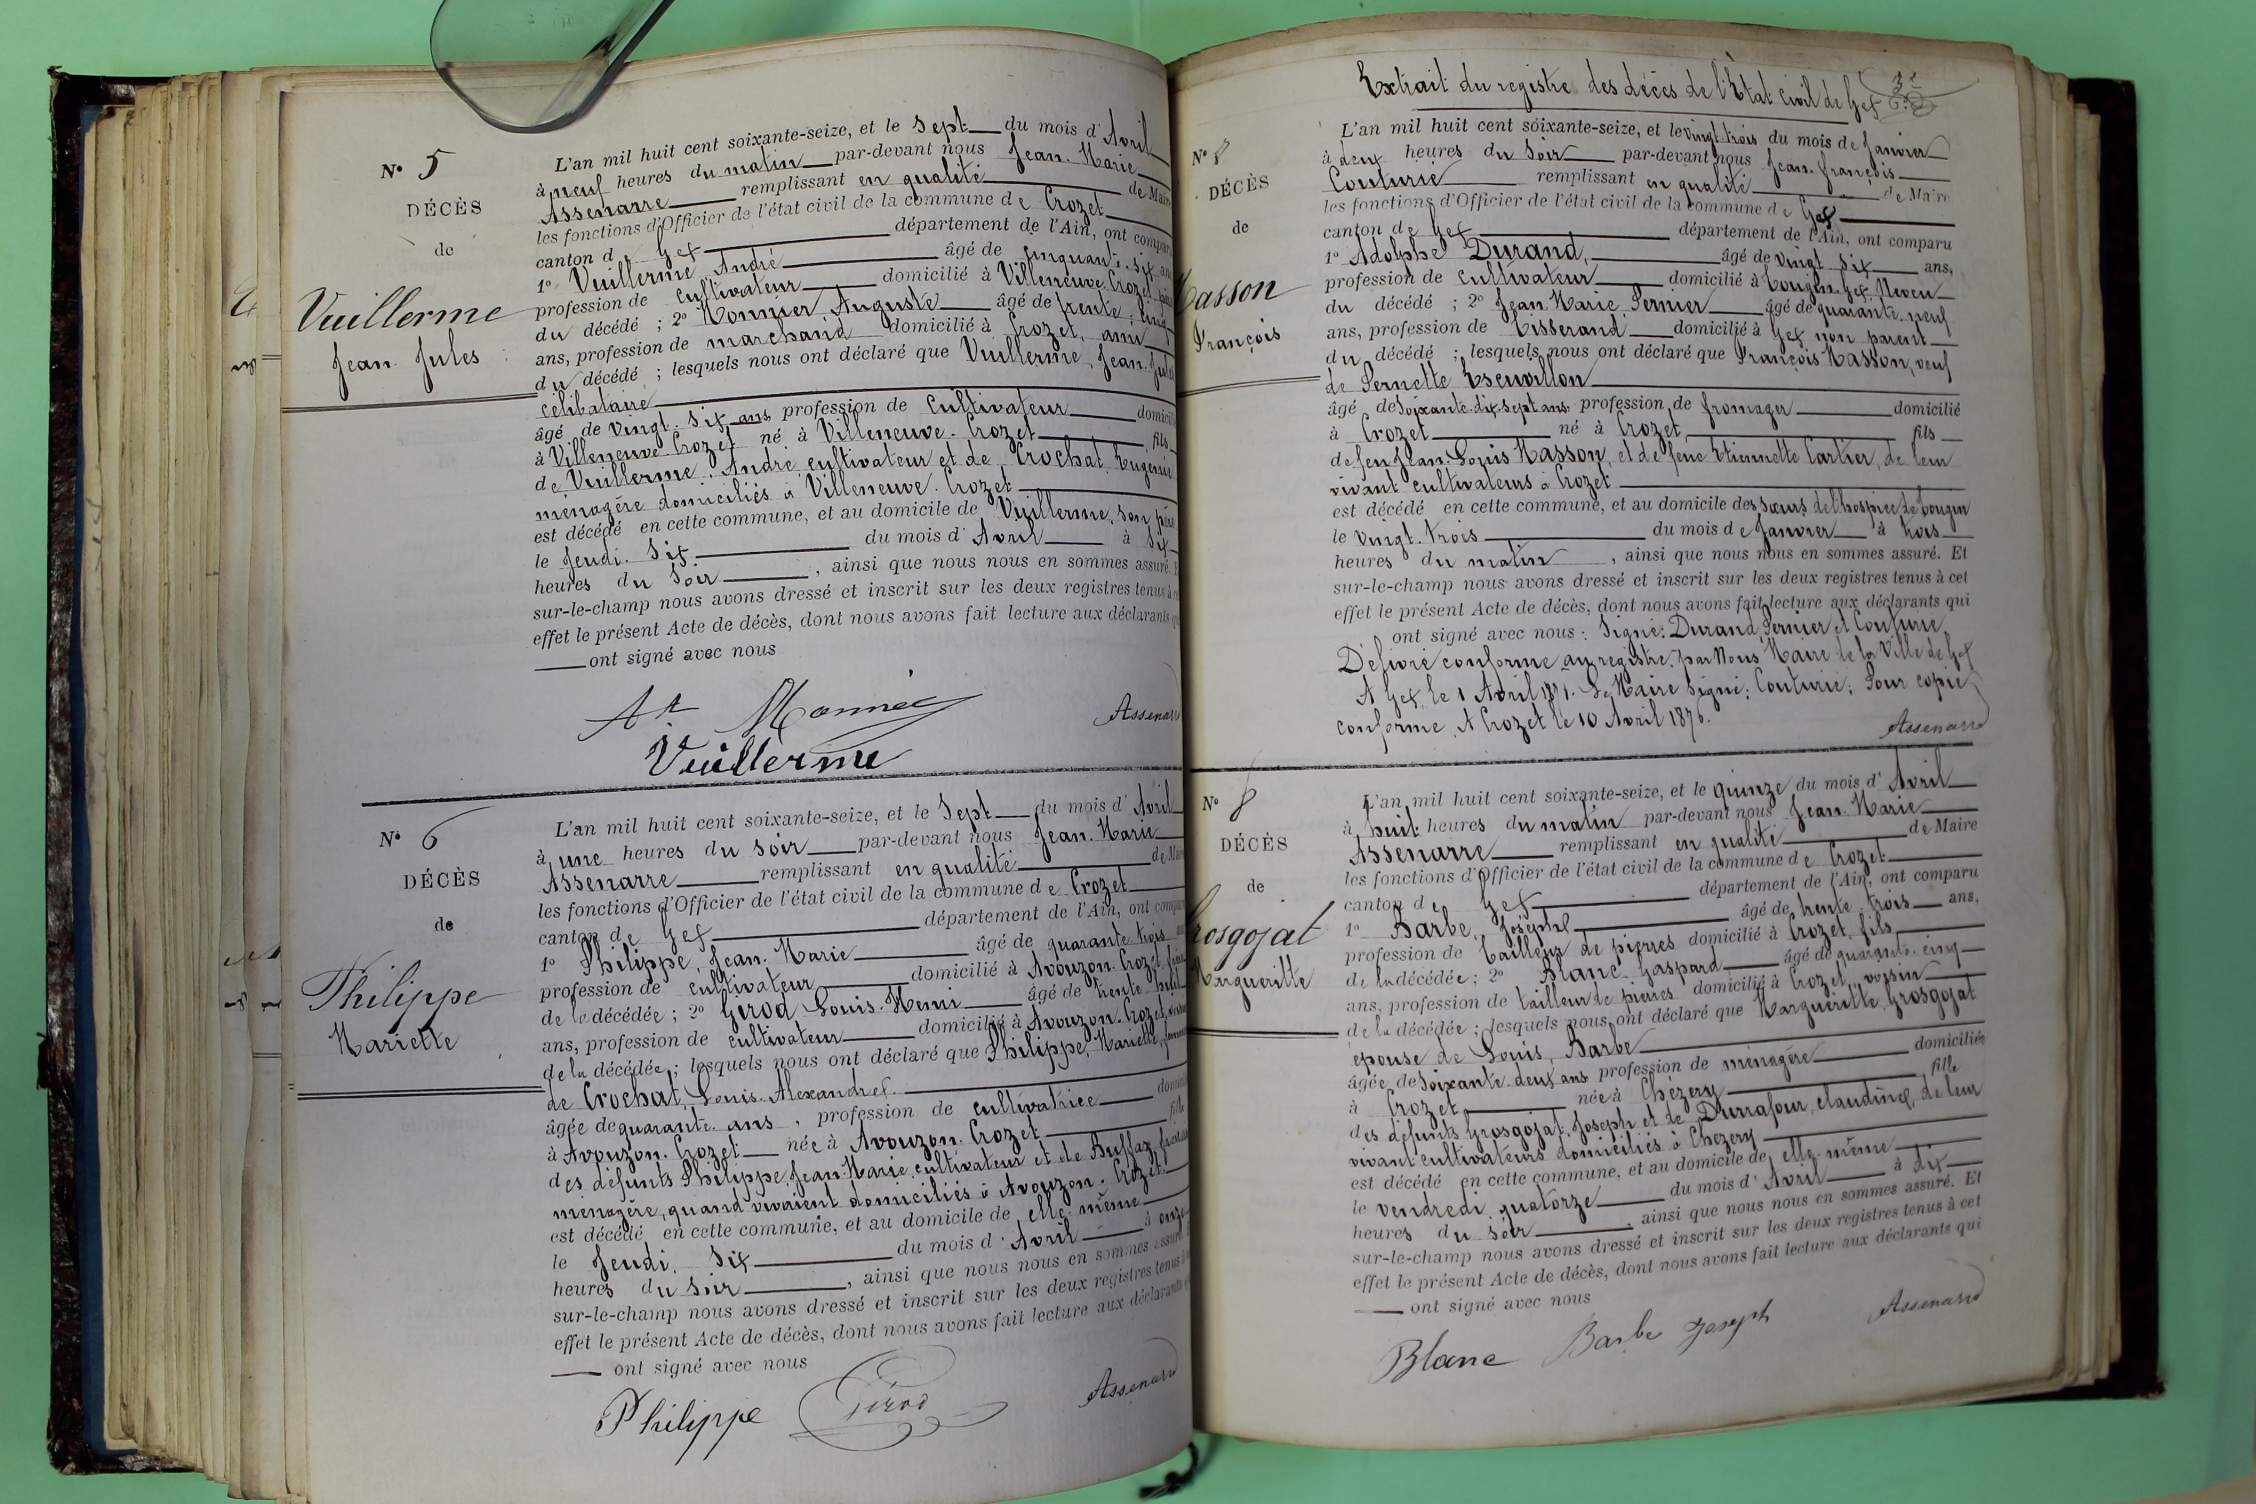 N° 5
DÉCÈS
de
Vuillerme
Jean Jules
L'an mil huit cent soixante-seize, et le Sept du mois d'Avril
à neuf heures du matin par-devant nous Jean-Marie
Assenarre remplissant en qualité de Maire
les fonctions d'Officier de l'état civil de la commune de Crozet
canton de Gex département de l'Ain, ont comparu
1° Vuillerme, André âgé de cinquante-six ans
profession de cultivateur domicilié à Villeneuve-Crozet père
du décédé ; 2° Monnier Auguste âgé de trente-cinq
ans, profession de marchand domicilié à Crozet, ami
du décédé ; lesquels nous ont déclaré que Vuillerme, Jean-Jules
célibataire
âgé de vingt-six ans profession de cultivateur domicilié
à Villeneuve-Crozet né à Villeneuve-Crozet fils
de Vuillerme André cultivateur et de Crochat Eugénie
ménagère domiciliés à Villeneuve-Crozet
est décédé en cette commune, et au domicile de Vuillerme, son père
le Jeudi Six du mois d'Avril à Six
heures du Soir, ainsi que nous nous en sommes assuré. Et
sur-le-champ nous avons dressé et inscrit sur les deux registres tenus à cet
effet le présent Acte de décès, dont nous avons fait lecture aux déclarants qui
ont signé avec nous
At Monnier Assenarre
Vuillerme
N° 6
DÉCÈS
de
Philippe
Mariette
L'an mil huit cent soixante-seize, et le Sept du mois d'Avril
à une heures du soir par-devant nous Jean-Marie
Assenarre remplissant en qualité de Maire
les fonctions d'Officier de l'état civil de la commune de Crozet
canton de Gex département de l'Ain, ont comparu
1° Philippe, Jean-Marie âgé de quarante-trois
profession de cultivateur domicilié à Avouzon-Crozet, frère
de la décédée ; 2° Girod Louis-Henri âgé de trente-huit
ans, profession de cultivateur domicilié à Avouzon-Crozet,
de la décédée ; lesquels nous ont déclaré que Philippe, Mariette, femme
de Crochat, Louis-Alexandre
âgée de quarante ans, profession de cultivatrice domiciliée
à Avouzon-Crozet née à Avouzon-Crozet fille
des défunts Philippe, Jean-Marie, cultivateur et de Buffaz,
ménagère, quand vivaient domiciliés à Avouzon-Crozet
est décédé en cette commune, et au domicile de elle-même
le Jeudi, Six du mois d'Avril à onze
heures du soir, ainsi que nous nous en sommes assuré
sur-le-champ nous avons dressé et inscrit sur les deux registres tenus à
effet le présent Acte de décès, dont nous avons fait lecture aux déclarants
ont signé avec nous
Philippe Girod Assenarre
Extrait du registre des décès de l'État civil de Gex
N° 7
DÉCÈS
de
Masson
François
L'an mil huit cent soixante-seize, et le vingt-trois du mois de Janvier
à deux heures du Soir par-devant nous Jean-françois
Couturié remplissant en qualité de Maire
les fonctions d'Officier de l'état civil de la commune de Gex
canton de Gex département de l'Ain, ont comparu
1° Adolphe Durand, âgé de vingt-six ans,
profession de cultivateur domicilié à Tougin-Gex, Neveu
du décédé ; 2° Jean-Marie Pernier âgé de quarante-neuf
ans, profession de Tisserand domicilié à Gex non parent
du décédé ; lesquels nous ont déclaré que François Masson, veuf
de Pernette Escuvillon
âgé de Soixante-dix-sept ans profession de fromager domicilié
à Crozet né à Crozet fils
de feu Jean-Louis Masson, et de feue Etiennette Cartier, de leur
vivant cultivateurs à Crozet
est décédé en cette commune, et au domicile des sœurs de l'hospice de Tougin
le vingt-trois du mois de Janvier à trois
heures du matin, ainsi que nous nous en sommes assuré. Et
sur-le-champ nous avons dressé et inscrit sur les deux registres tenus à cet
effet le présent Acte de décès, dont nous avons fait lecture aux déclarants qui
ont signé avec nous : Signé : Durand, Pernier et Couturié
Délivré conforme au registre, par Nous Maire de la Ville de Gex
A Gex, le 1 Avril 1871. Le Maire Signé : Couturié ; Pour copie
conforme, A Crozet le 10 Avril 1876.
Assenarre
N° 8
DÉCÈS
de
Grosgojat
Margueritte
L'an mil huit cent soixante-seize, et le quinze du mois d'Avril
à huit heures du matin par-devant nous Jean-Marie
Assenarre remplissant en qualité de Maire
les fonctions d'Officier de l'état civil de la commune de Crozet
canton de Gex département de l'Ain, ont comparu
1° Barbe, Joseph âgé de trente-trois ans,
profession de Tailleur de pierres domicilié à Crozet, fils
de la décédée ; 2° Blanc Gaspard âgé de quarante-cinq
ans, profession de tailleur de pierres domicilié à Crozet, voisin
de la décédée ; lesquels nous ont déclaré que Margueritte Grosgojat
épouse de Louis, Barbe
âgée de Soixante-deux ans profession de ménagère domiciliée
à Crozet née à Chézery fille
des défunts Grosgojat, Joseph et de Durrafour, claudine, de leur
vivant cultivateurs domiciliés à Chézery
est décédé en cette commune, et au domicile de elle-même
le vendredi quatorze du mois d'Avril à dix
heures du soir, ainsi que nous nous en sommes assuré. Et
sur-le-champ nous avons dressé et inscrit sur les deux registres tenus à cet
effet le présent Acte de décès, dont nous avons fait lecture aux déclarants qui
ont signé avec nous
Blanc Barbe Joseph Assenarre